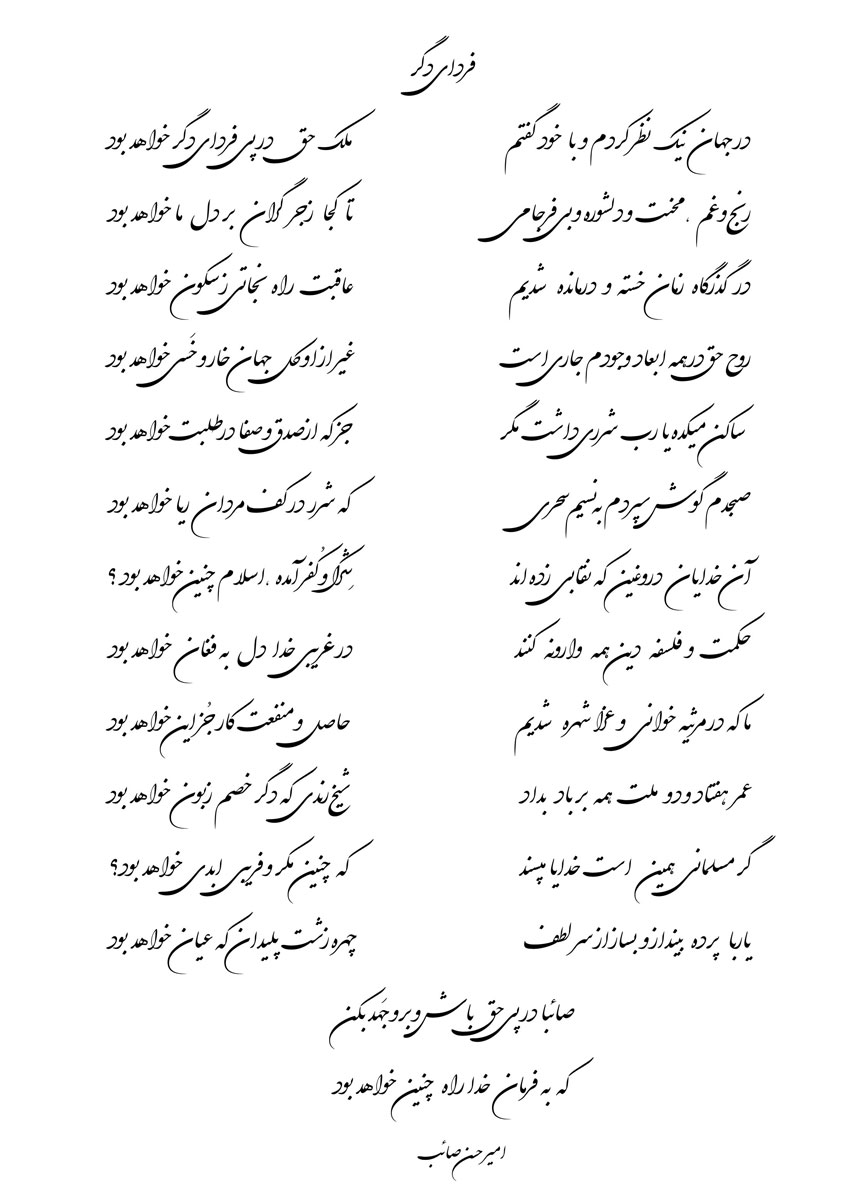 فردای دگر
در جهان نیک نظر کردم و با خود گفتم ملک حق در پی فردای دگر خواهد بود
رنج و غم ، محنت و دلشوره و بی فرجامی تا کجا زجر گران بر دل ما خواهد بود
در گذرگاه زمان خسته و درمانده شدیم عاقبت راه نجاتی ز سکون خواهد بود
روح حق در همه ابعاد وجودم جاری است غیر از او کل جهان خار و خَسی خواهد بود
ساکن میکده یا رب شرری داشت مگر جز که از صدق و صفا در طلبت خواهد بود
صبحدم گوش سپردم به نسیم سحری که شرر در کف مردان ریا خواهد بود
آن خدایان دروغین که نقابی زده اند شِرک و کُفر آمده ، اسلام چنین خواهد بود ؟
حکمت و فلسفه دین همه وارونه کنند در غریبی خدا دل به فغان خواهد بود
ما که در مرثیه خوانی و عزا شهره شدیم حاصل و منفعت کار جُز این خواهد بود
عمر هفتاد و دو ملت همه بر باد بداد شیخ رندی که دگر خصم زبون خواهد بود
گر مسلمانی همین است خدایا مپسند که چنین مکر و فریبی ابدی خواهد بود؟
یاربا پرده بینداز و بساز از سر لطف چهره زشت پلیدان که عیان خواهد بود
صائبا در پی حق باش و برو جَهد بکن
که به فرمان خدا راه چنین خواهد بود
امیرحسن صائب